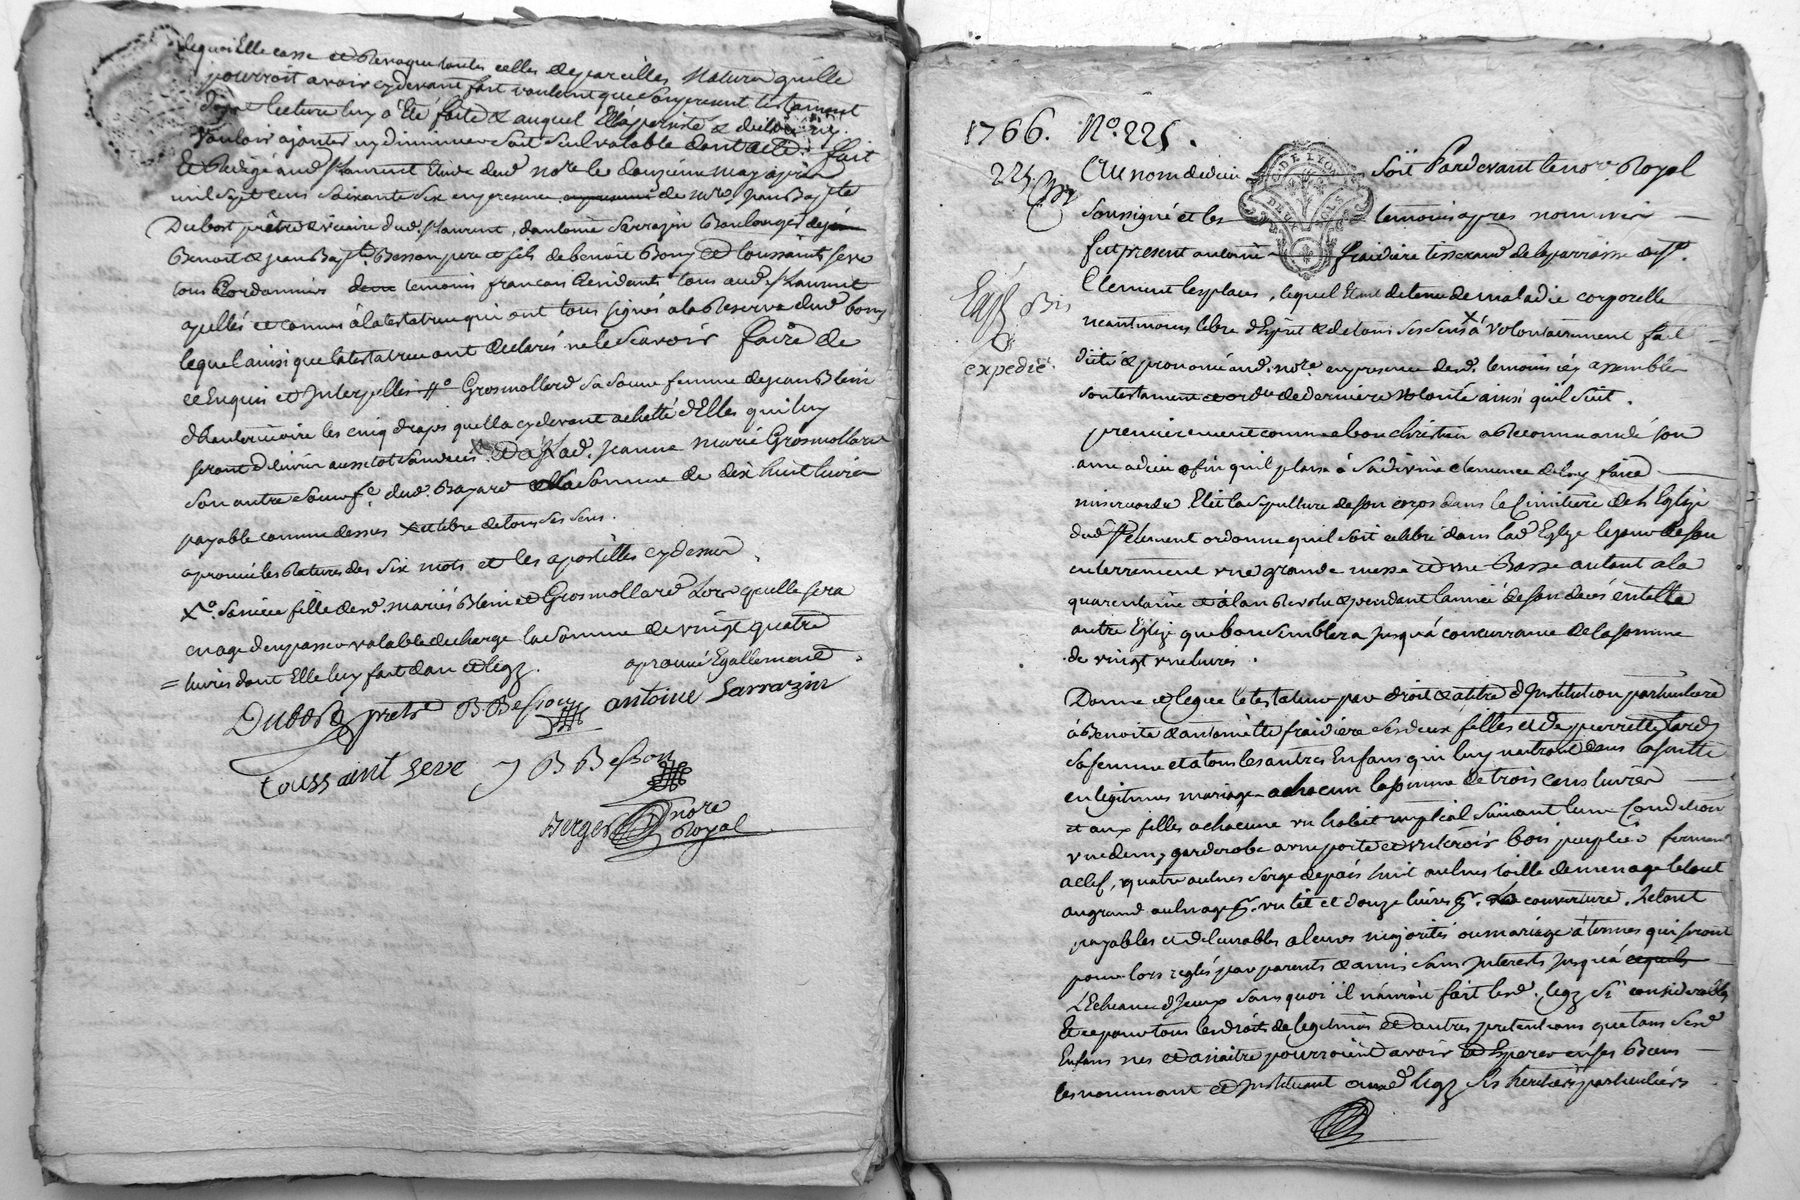 dequoi Elle casse et Revoque toutes celles de pareilles Nature qu'elle
pourroit avoir cy devant fait voulant que son present testament
dont lecture luy a Eté faite & auquel Elle persiste & declare n'y
vouloir ajouter ny diminuer soit seul valable dont acte. fait
Et Redigé aud. St Laurent Etude dud. no.re le douzieme may apres
mil sept cens soixante six en presence de m.re Jean Bap.te
Dubost prêtre & vicaire dud. St Laurent, d'antoine Sarrazin Boulanger
Benoit & Jean Bap.t Besson pere et fils de benoit Bony et toussaint seve
tous Cordonniers temoins francois Residents tous aud. St Laurent
apellés et connus à la testatrice qui ont tous signés a la Reserve dud. bony
lequel ainsi que la testatrice ont declarés ne le scavoir faire de
ce Enquis et Interpellés #o Grosmollard sa soeur femme de Jean Blein
d'hauterivoire les cinq draps quelle a cy devant achetté d'Elles qui luy
seront delivrés aussitot son deces. Da Jeanne marie Grosmollard
son autre soeur f.e dud. Bazard la somme de dix huit livres
payable comme dessus X et libre de tous ses sens.
aprouvé les Ratures des six mots et les apostilles cy dessus
X.o fille desd. mariés Blein et Grosmollard Lors quelle sera
en age d'en passer valable decharge la somme de vingt quatre
= livres dont Elle luy fait don et legz. aprouvé Egallement
Dubost pretre B Besson antoine Sarrazin
toussaint seve J B Besson
Berger no.re
Royal
1766. N.o 225.
225
Au nom de dieu soit Pardevant le no.re Royal
G. DE LYON
DEUX SOLS
soussigné et les temoins apres nommés
fut present antoine fraidiere tisserand de la paroisse de St
Clement les places, lequel Etant detenu de maladie corporelle
neantmoins libre d'Esprit & de tous ses sens X a volontairement fait
dicté & prononcé aud. no.re en presence desd. temoins icy assemblés
son testament et ord.ce de derniere volonté ainsi quil suit.
Bis
expedié
premierement comme bon chretien a Recommandé son
ame a dieu afin quil plaise à sa divine clemence de luy faire
misericorde Elit la sepulture de son corps dans le Cimitiere de l'Eglize
dud. St Clement ordonne qu'il soit celebré dans lad. Eglize le jour de son
enterrement une grande messe et une Basse autant a la
quarantaine et à l'an Revolu & pendant l'année de son decés en telle
autre Eglize que bon semblera jusqu'à concurrance de la somme
de vingt une livres.
Donne et legue le testateur par droit & a titre d'Institution particuliere
à Benoite & antoinette fraidiere ses deux filles et de pierrette
sa femme et a tous les autres Enfans qui luy naitront dans la suitte
en legitimes mariage a chacun la somme de trois cens livres
et aux filles a chacune un habit nuptial suivant leur Condition
une demy garderobe a une porte et un tiroir bois fermant
a clef, quatre aulnes serge de païs huit aulnes toille de menage le tout
au grand aulnage un lit et douze livres couverture. le tout
payables et delivrables a leurs majorités ou mariage à termes qui seront
pour lors reglés par parents & amis sans Interests jusqu'à
L'Echeance d'Iceux sans quoi il n'auroit fait lesd. legz si considerables
Et ce pour tous les droits de legitimes et autres pretentions que tous sesd.
Enfans nés et a naitre pourroient avoir et Esperer en ses Biens
les nommant et Instituant auxd. legz ses heritiers particuliers